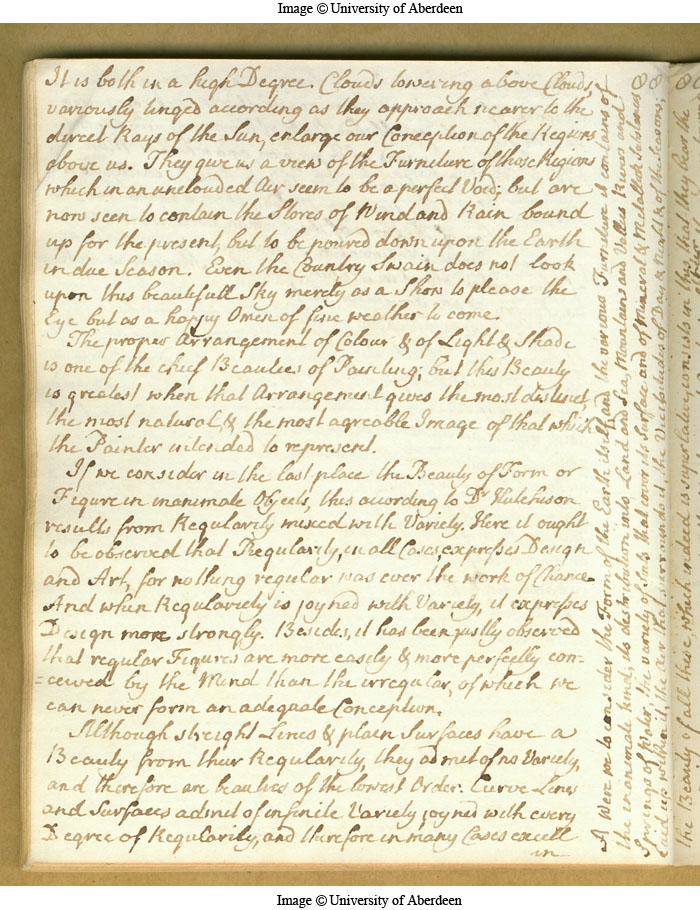 Image © University of Aberdeen
It is both in a high Degree. Clouds towering above Clouds,
variously tinged according as they approach nearer to the
direct Rays of the Sun, enlarge our Conception of the Regions
above us. They give us a view of the Furneture of those Regions
which in an unclouded Air seem to be a perfect Void; but are
now seen to contain the Stores of Wind and Rain bound
up for the present, but to be poured down upon the Earth
in due Season. Even the Country Swain does not look
upon this beautifull Sky merely as a Show to please the
Eye but as a happy Omen of fine weather to come.
The proper Arrangement of Colour & of Light & Shade
is one of the chief Beauties of Painting; but this Beauty
is greatest when that Arrangement gives the most distinct
the most natural, & the most agreable Image of that which
the Painter intended to represent.
If we consider in the last place the Beauty of Form or
Figure in inanimate Objects, this according to Dr Hutchison
results from Regularity mixed with Variety. Here it ought
to be observed that Regularity, in all Cases, expresses Design
and Art, for nothing regular was ever the work of Chance.
And when Regularity is joyned with Variety, it expresses
Design more strongly. Besides, it has been justly observed
that regular Figures are more easily & more perfectly con=
=ceived by the Mind than the irregular, of which we
can never form an adequate Conception.
Although streight Lines & plain Surfaces have a
Beauty from their Regularity, they admit of no Variety,
and therefore are beauties of the lowest Order. Curve Lines
and Surfaces admit of infinite Variety, joyned with every
Degree of Regularity, and therefore in many Cases excell
in
A Were we to consider the Form of the Earth itself and the various Furniture it contains of
the inanimate kind, its destribution into Land and Sea, Mountains and Vallies Rivers and
Springs of Water, the variety of Soils that cover its Surface and of Mineral & Metallick Substances
laid up within it, the Air that surrounds it the Vicissitudes of Day & Night & of the Seasons;
the Beauty of all these which indeed is superlative, consists in this that they bear the
Image © University of Aberdeen